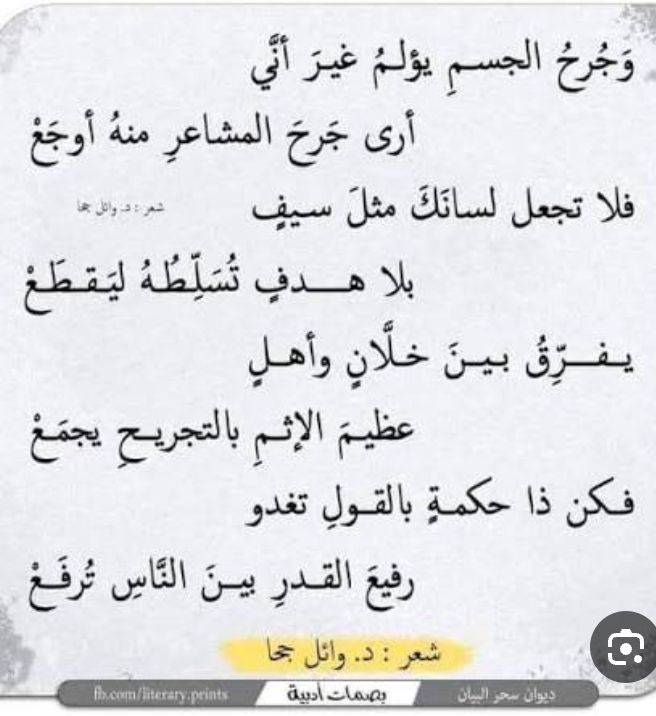 وَجُرحُ الجسمِ يؤلمُ غيرَ أنَّي
أرى جَرحَ المشاعرِ منهُ أوجَعْ
فلا تجعل لسانَكَ مثلَ سيفٍ
شعر : د. وائل جحا
بلا هدفٍ تُسَلِّطُهُ ليَقطَعْ
يفرِّقُ بينَ خلَّانٍ وأهلٍ
عظيمَ الإثمِ بالتجريحِ يجمَعْ
فكن ذا حكمةٍ بالقولِ تغدو
رفيعَ القدرِ بينَ النَّاسِ تُرفَعْ
شعر : د. وائل جحا
ديوان سحر البيان بصمات أدبية fb.com/literary.prints